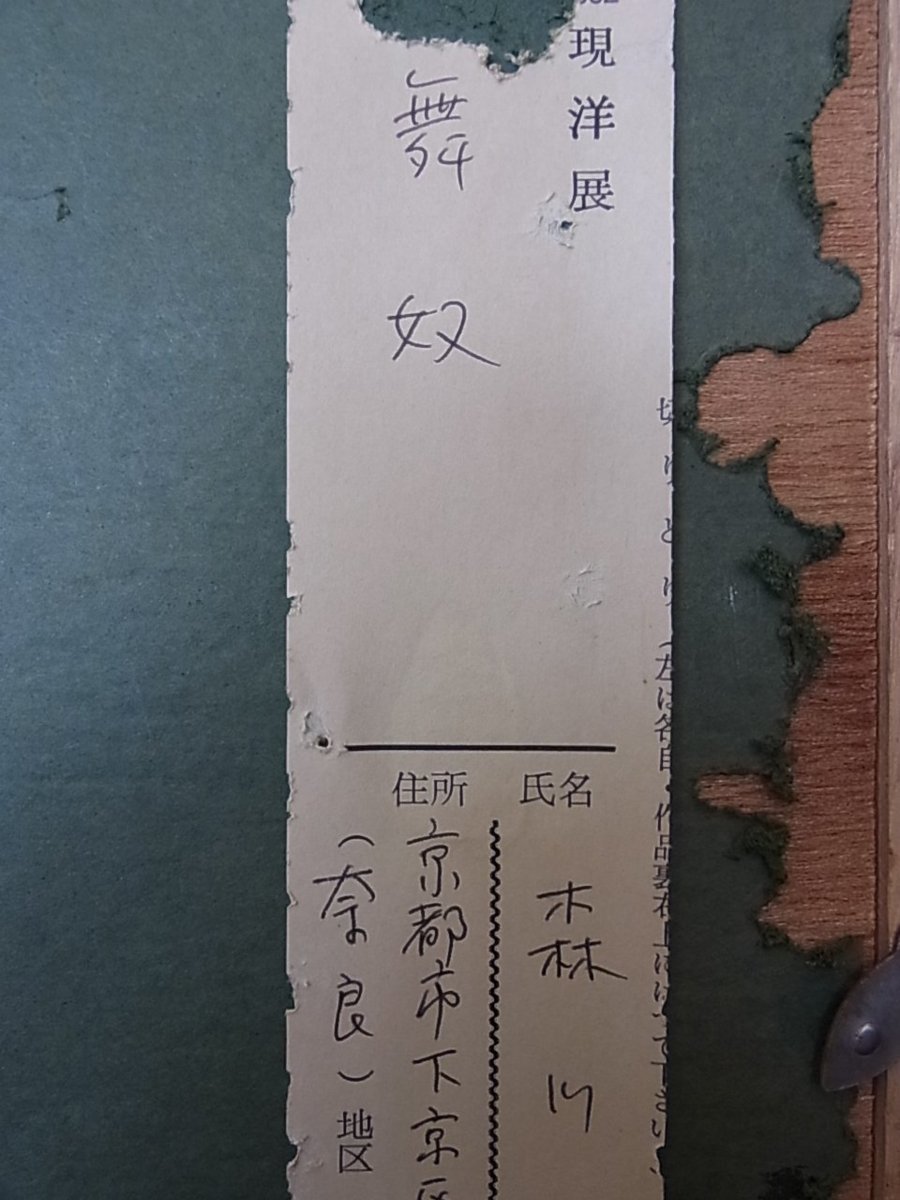 切りとり(左は各自・作品裏右上にはって下さい)
現洋展
舞奴
氏名
森
住所
京都市下京区
(奈良)地区